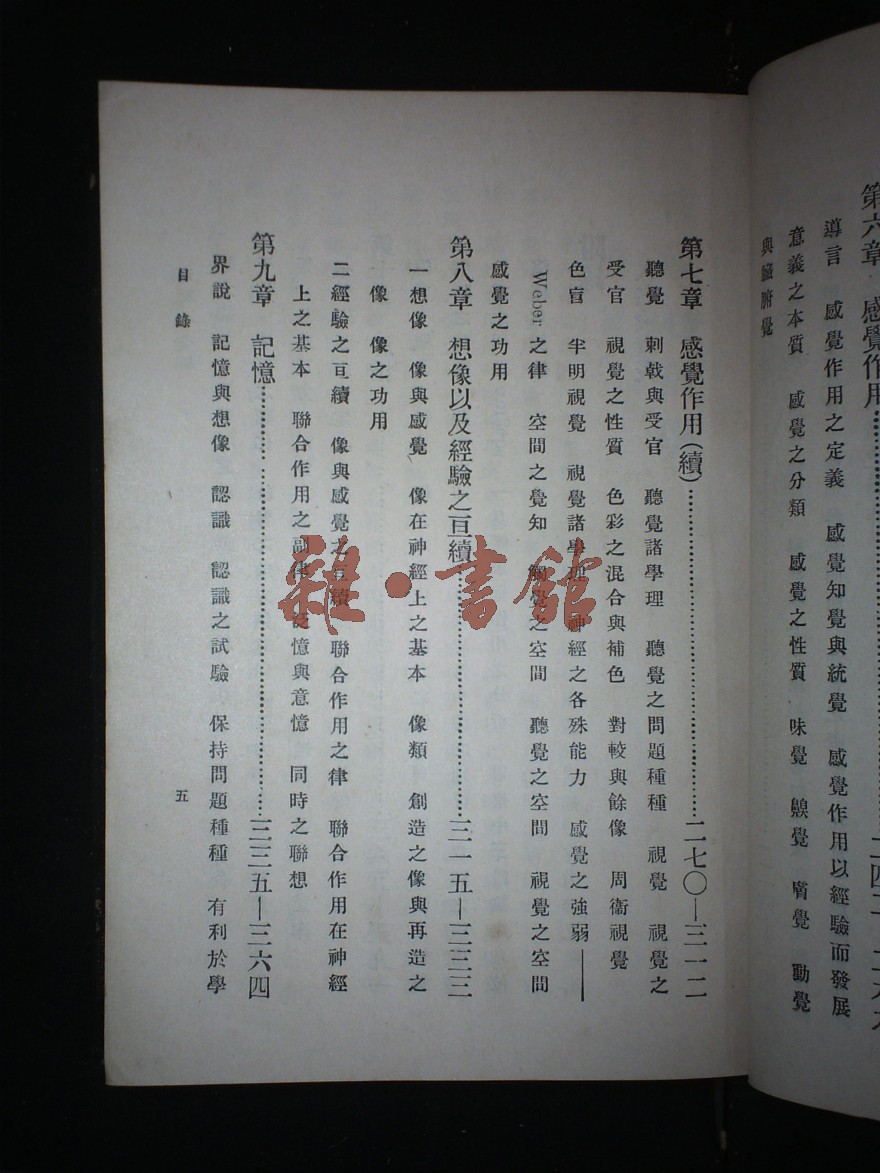 第六章 感覺作用
導言 感覺作用之定義 感覺知覺與統覺 感覺作用以經驗而發展
意義之本質 感覺之分類 感覺之性質 味覺 齅覺 膚覺 動覺
與臟腑覺
第七章 感覺作用(續)……二七〇—三一二
聽覺 刺戟與受官 聽覺諸學理 聽覺之問題種種 視覺 視覺之
受官 視覺之性質 色彩之混合與補色 對較與餘像 周衞視覺
色盲 半明視覺 視覺諸學理 神經之各殊能力 感覺之強弱——
Weber之律 空間之覺知 觸覺之空間 聽覺之空間 視覺之空間
感覺之功用
第八章 想像以及經驗之亘續……三一五—三三三
一想像 像與感覺 像在神經上之基本 像類 創造之像與再造之
像 像之功用
二經驗之亘續 像與感覺之亘續 聯合作用之律 聯合作用在神經
上之基本 聯合作用之副律 泛憶與意憶 同時之聯想
第九章 記憶……三三五—三六四
界說 記憶與想像 認識 認識之試驗 保持問題種種 有利於學
目錄 五
雜·書館